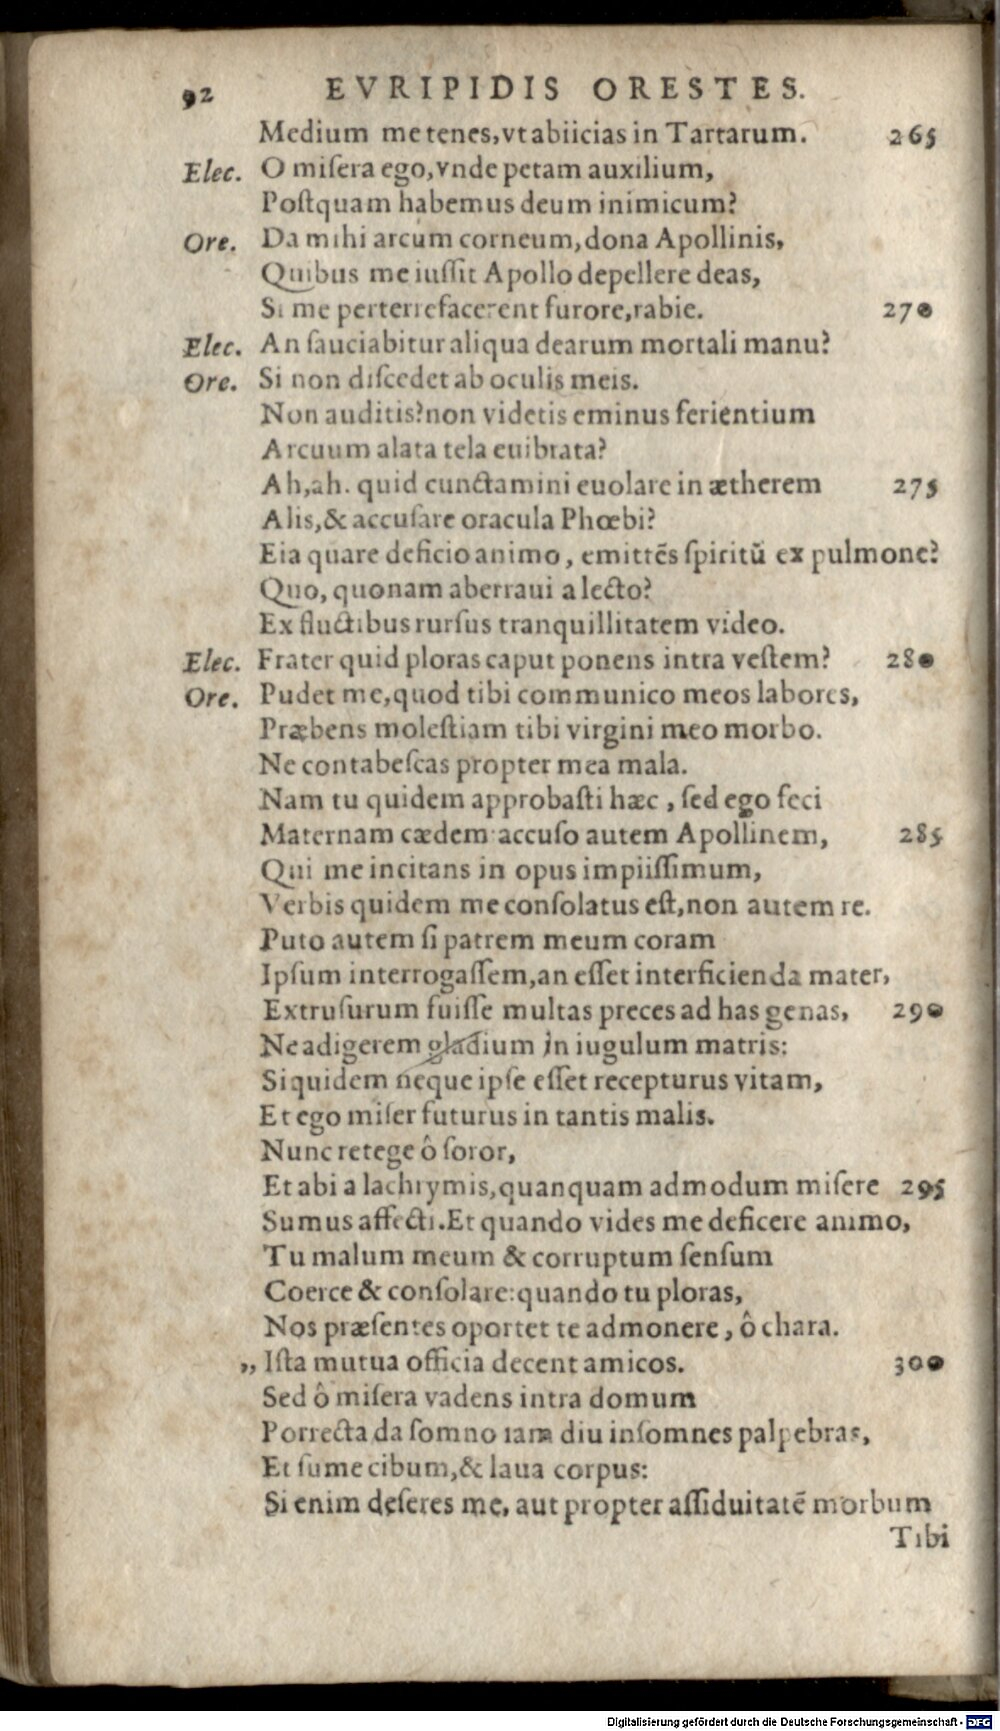 92 EVRIPIDIS ORESTES.
Medium me tenes, vt abiicias in Tartarum. 265
Elec. O miſera ego, vnde petam auxilium,
Poſtquam habemus deum inimicum?
Ore. Da mihi arcum corneum, dona Apollinis,
Quibus me iuſſit Apollo depellere deas,
Si me perterrefacerent furore, rabie. 270
Elec. An ſauciabitur aliqua dearum mortali manu?
Ore. Si non diſcedet ab oculis meis.
Non auditis? non videtis eminus ferientium
Arcuum alata tela euibrata?
Ah, ah. quid cunctamini euolare in ætherem 275
Alis, & accuſare oracula Phœbi?
Eia quare deficio animo, emittẽs ſpiritũ ex pulmone?
Quo, quonam aberraui a lecto?
Ex fluctibus rurſus tranquillitatem video.
Elec. Frater quid ploras caput ponens intra veſtem? 280
Ore. Pudet me, quod tibi communico meos labores,
Præbens moleſtiam tibi virgini meo morbo.
Ne contabeſcas propter mea mala.
Nam tu quidem approbaſti hæc, ſed ego feci
Maternam cædem: accuſo autem Apollinem, 285
Qui me incitans in opus impiiſſimum,
Verbis quidem me conſolatus eſt, non autem re.
Puto autem ſi patrem meum coram
Ipſum interrogaſſem, an eſſet interficienda mater,
Extruſurum fuiſſe multas preces ad has genas, 290
Ne adigerem gladium in iugulum matris:
Siquidem neque ipſe eſſet recepturus vitam,
Et ego miſer futurus in tantis malis.
Nunc retege ô ſoror,
Et abi a lachrymis, quanquam admodum miſere 295
Sumus affecti. Et quando vides me deficere animo,
Tu malum meum & corruptum ſenſum
Coerce & conſolare: quando tu ploras,
Nos præſentes oportet te admonere, ô chara.
„ Iſta mutua officia decent amicos. 300
Sed ô miſera vadens intra domum
Porrecta da ſomno iam diu inſomnes palpebras,
Et ſume cibum, & laua corpus:
Si enim deſeres me, aut propter aſſiduitatẽ morbum
Tibi
Digitalisierung gefördert durch die Deutsche Forschungsgemeinschaft - DFG